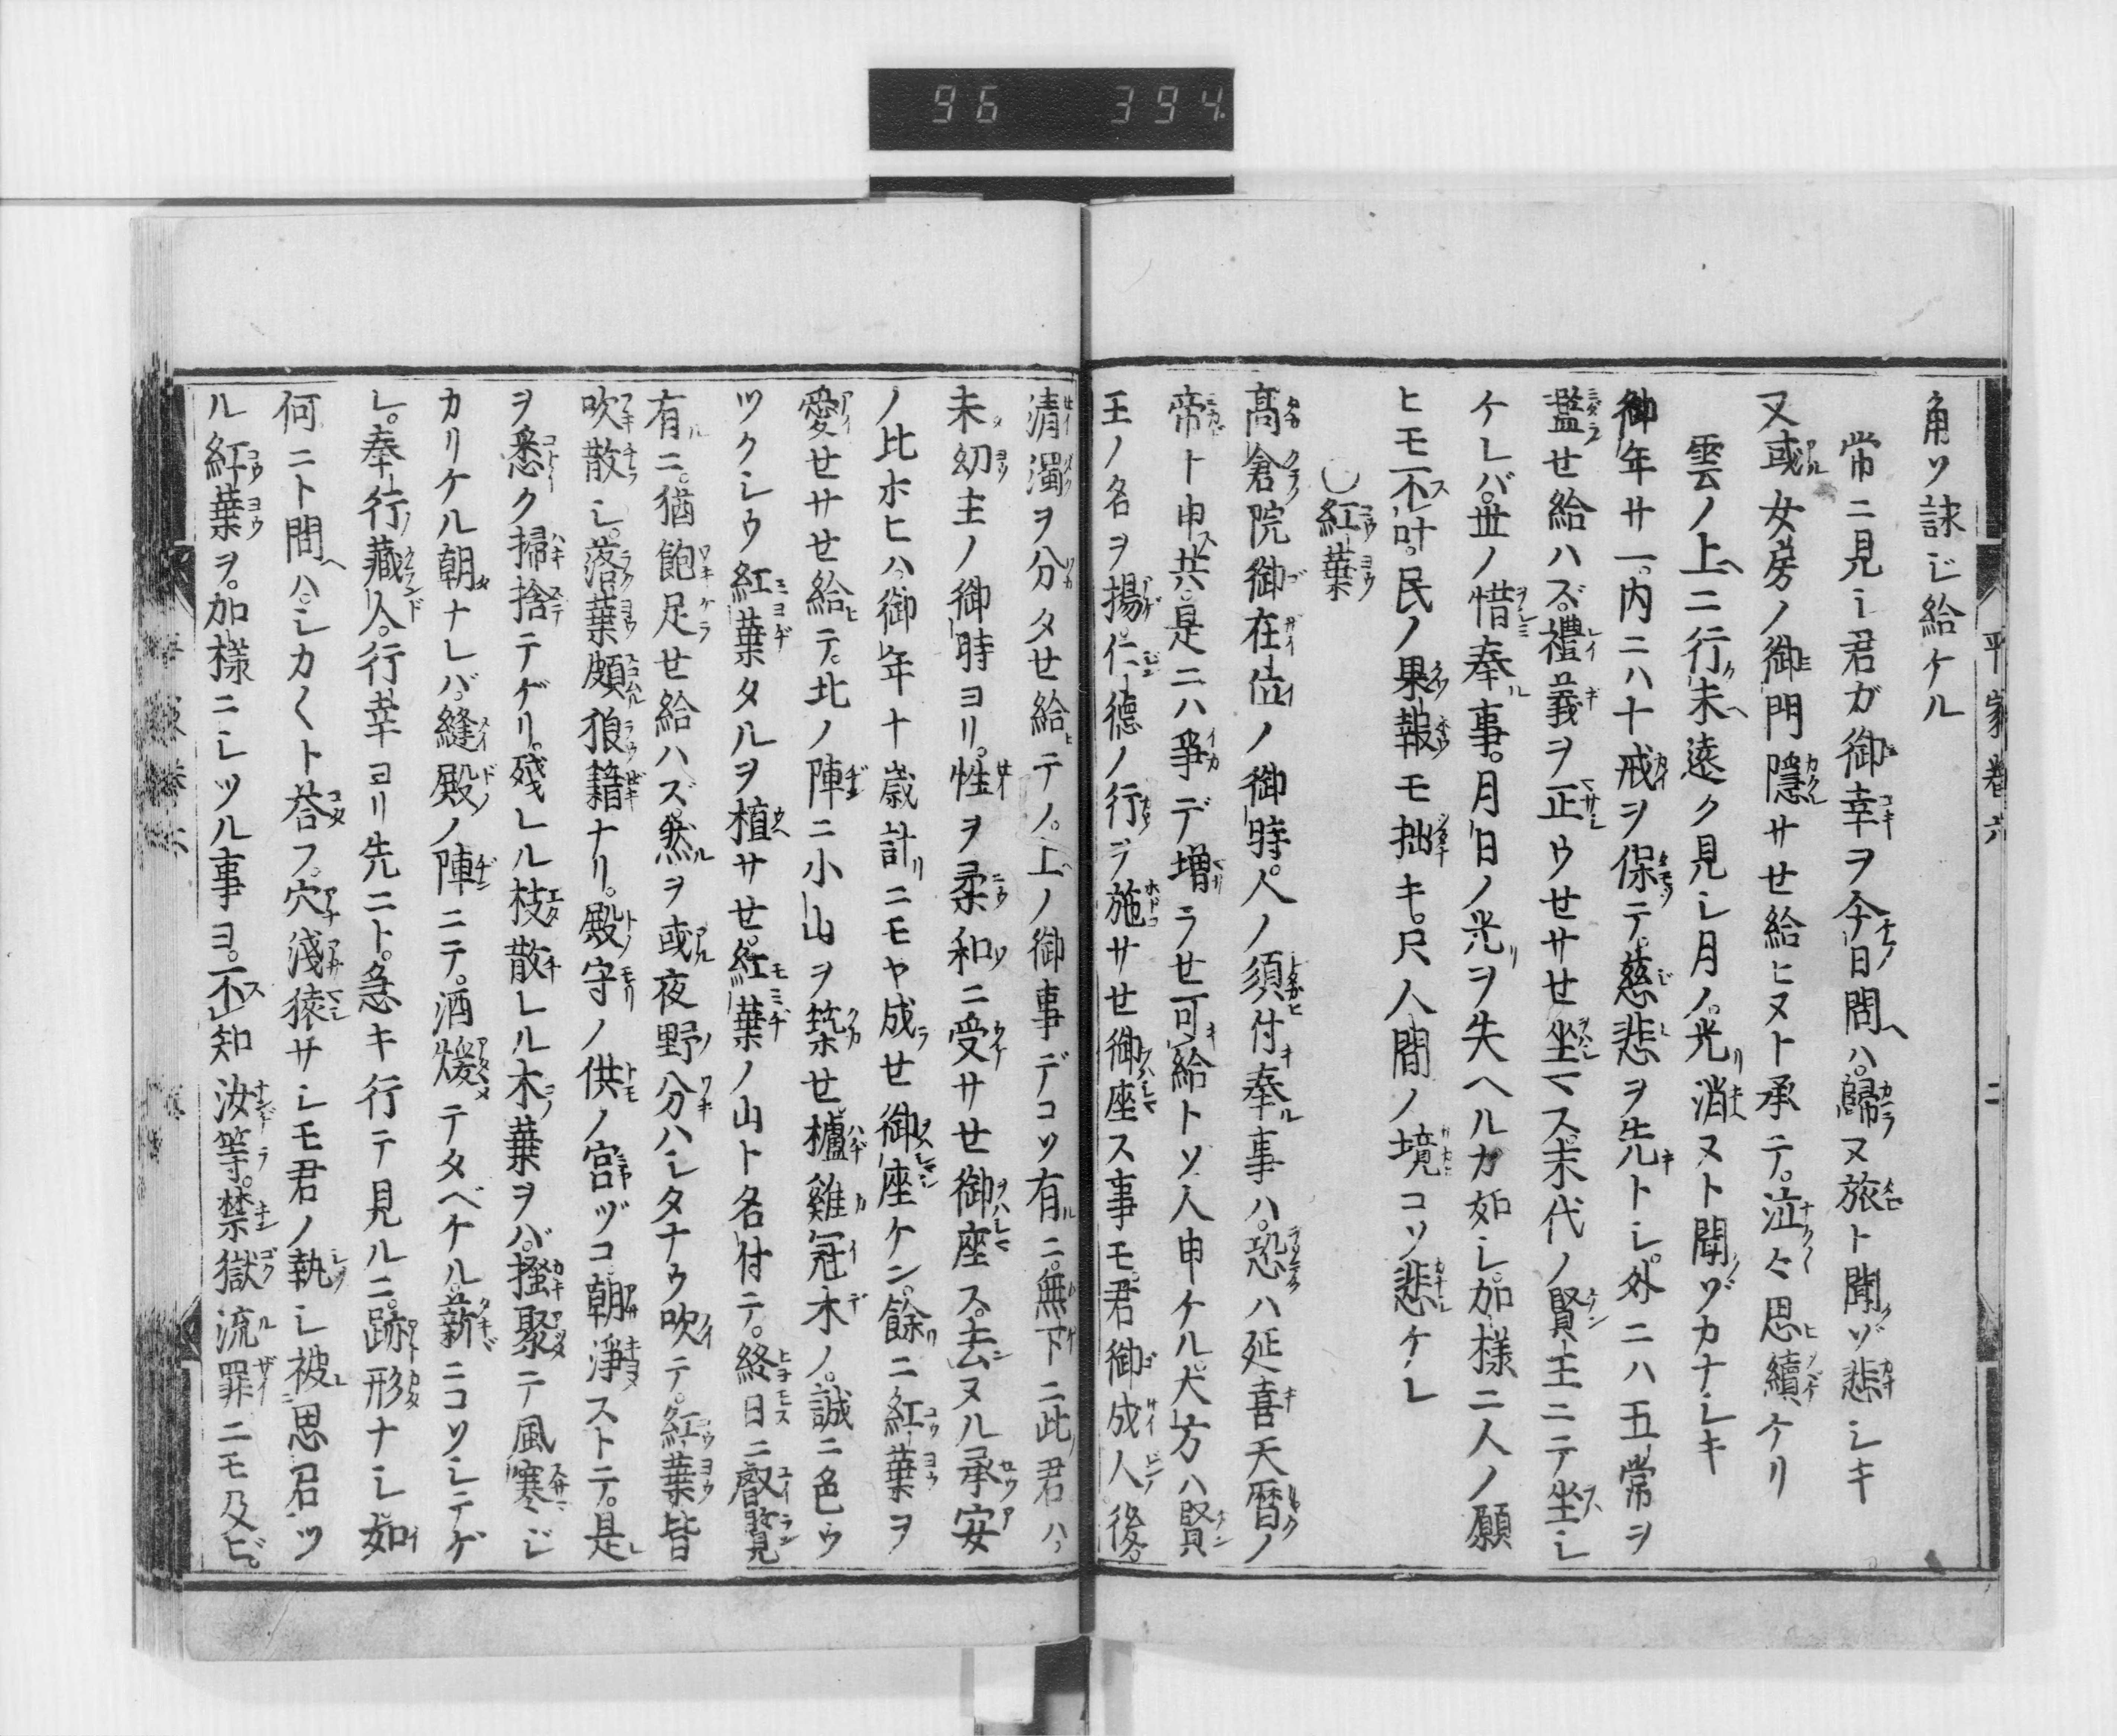 96 394
平家巻六 二
角ソ詠ジ給ケル
常ニ見シ君ガ御幸ヲ今日問ヘハ。歸ヌ旅ト聞ゾ悲シキ
又或女房ノ御門隱サせ給ヒヌト承テ。泣々思續ケリ
雲ノ上ニ行末遠ク見シ月ノ。光消ヌト聞ゾカナシキ
御年廿一。内ニハ十戒ヲ保テ。慈悲ヲ先トシ。外ニハ五常ヲ
濫せ給ハズ。禮義ヲ正ウせサせ坐マス。末代ノ賢王ニテ坐シ
ケレバ。世ノ惜奉事。月日ノ光ヲ失ヘルガ如シ。加樣ニ人ノ願
ヒモ不叶。民ノ果報モ拙キ。只人間ノ境コソ悲ケレ
紅葉
高倉院御在位ノ御時。人ノ須付奉事ハ。恐ハ延喜天暦ノ
帝ト申共。是ニハ爭デ増ラせ可給トソ人申ケル。大方ハ賢
王ノ名ヲ揚。仁德ノ行ヲ施サせ御座ス事モ。君御成人後。
清濁ヲ分タせ給テノ。上ノ御事デコソ有ニ。無下ニ此君ハ。
未幼主ノ御時ヨリ。性ヲ柔和ニ受サせ御座ス。去ヌル承安
ノ比ホヒハ。御年十歳計ニモヤ成せ御座ケン。餘ニ紅葉ヲ
愛せサせ給テ。北ノ陣ニ小山ヲ築せ。櫨雞冠木ノ。誠ニ色ウ
ツクシウ紅葉タルヲ植サせ。紅葉ノ山ト名付テ。終日ニ叡覽
有ニ。猶飽足せ給ハズ。然ヲ或夜野分ハシタナウ吹テ。紅葉皆
吹散シ。落葉頗狼籍ナリ。殿守ノ供ノ宮ヅコ。朝淨ストテ。是
ヲ悉ク掃捨テゲリ。殘レル枝散レル木葉ヲバ。掻聚テ風寒ジ
カリケル朝ナレバ。縫殿ノ陣ニテ。酒煖テタベケル。薪ニコソシテゲ
レ。奉行藏人。行幸ヨリ先ニト。急キ行テ見ルニ。跡形ナシ。如
何ニト問ヘハ。シカ〱ト荅フ。穴淺猿サシモ君ノ執シ被思召ツ
ル紅葉ヲ。加樣ニシツル事ヨ。不知汝等。禁獄流罪ニモ及ビ。